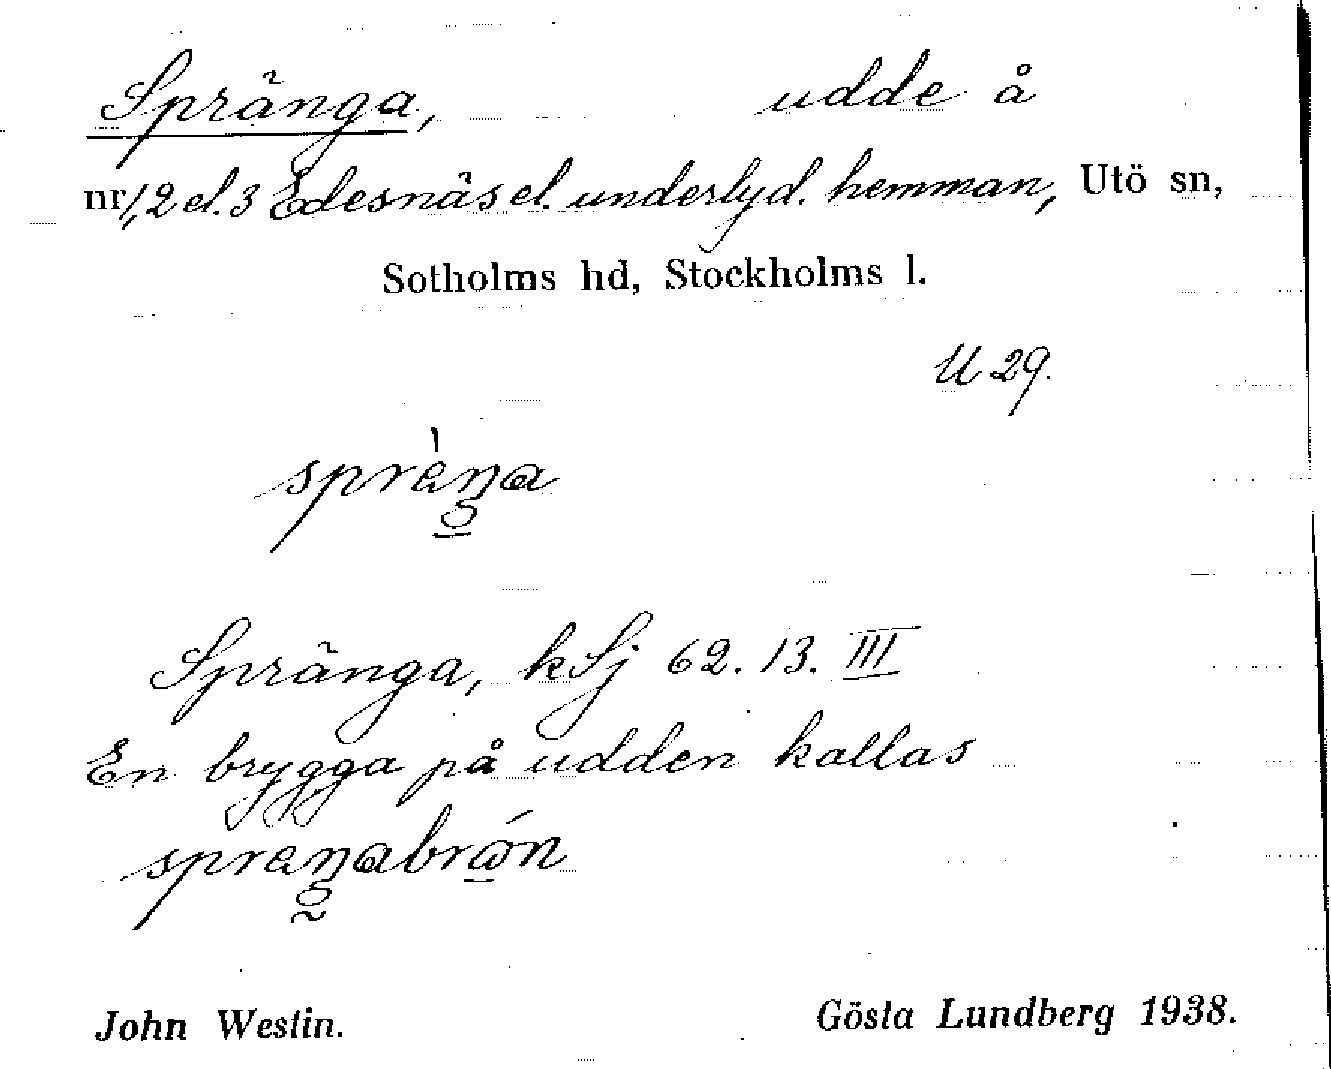 Spränga, udde å
nr 1, 2 el. 3 Edesnäs el. underlyd. hemman, Utö sn,
Sotholms hd, Stockholms l.
U 29.
spràŋa
Spränga, kSj 62. 13. III
En brygga på udden kallas
spraŋabrón
John Westin. Gösta Lundberg 1938.